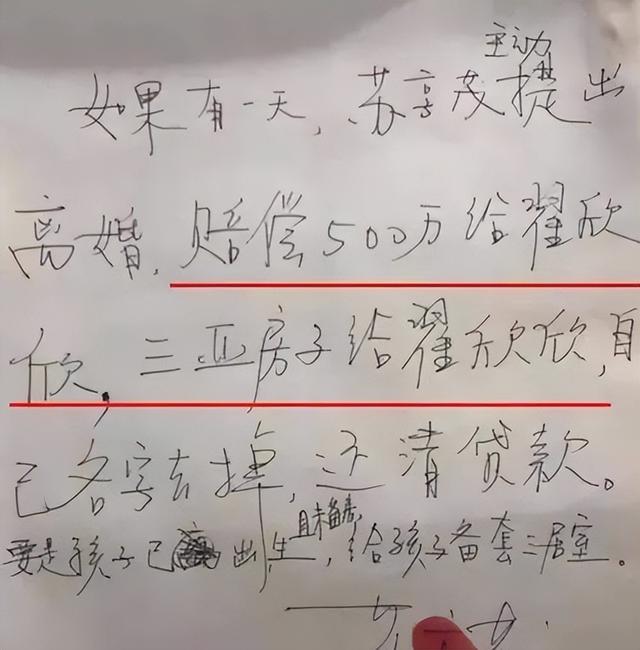 主动
如果有一天,苏享茂提出
离婚,赔偿500万给翟欣
欣,三亚房子给翟欣欣,自
己名字去掉,还清贷款。
要是孩子已出生,给孩子备套三居室。